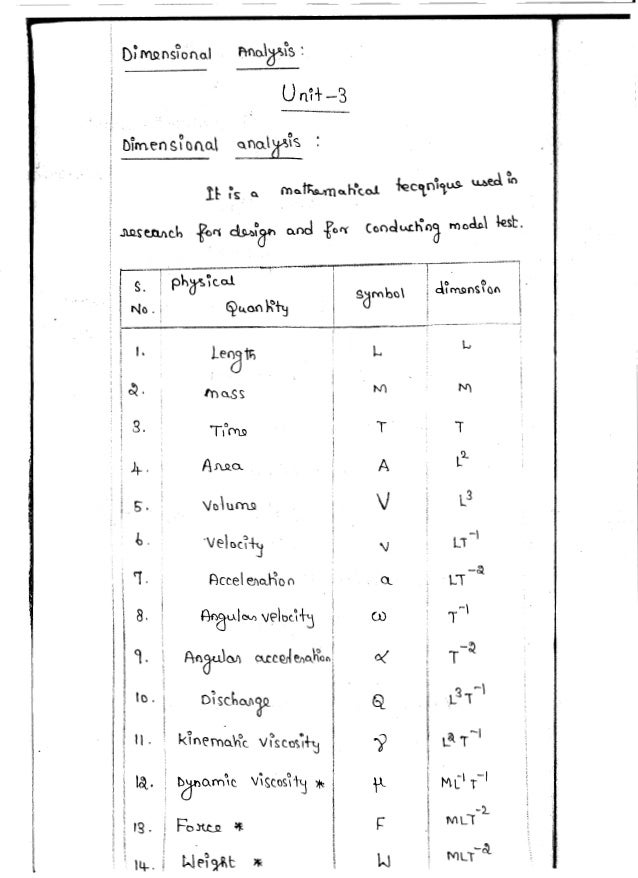 Dimensional Analysis :
Unit-3
Dimensional analysis :
It is a mathematical tecqnique used in
research for design and for conducting model test.
S. No. physical Quantity symbol dimension
1. Length L L
2. mass M M
3. Time T T
4. Area A L²
5. Volume V L³
6. Velocity v LT⁻¹
7. Acceleration a LT⁻²
8. Angular velocity ω T⁻¹
9. Angular accerleration α T⁻²
10. Discharge Q L³T⁻¹
11. kinematic viscosity γ L²T⁻¹
12. Dynamic viscosity * μ ML⁻¹T⁻¹
13. Force * F MLT⁻²
14. Weight * W MLT⁻²